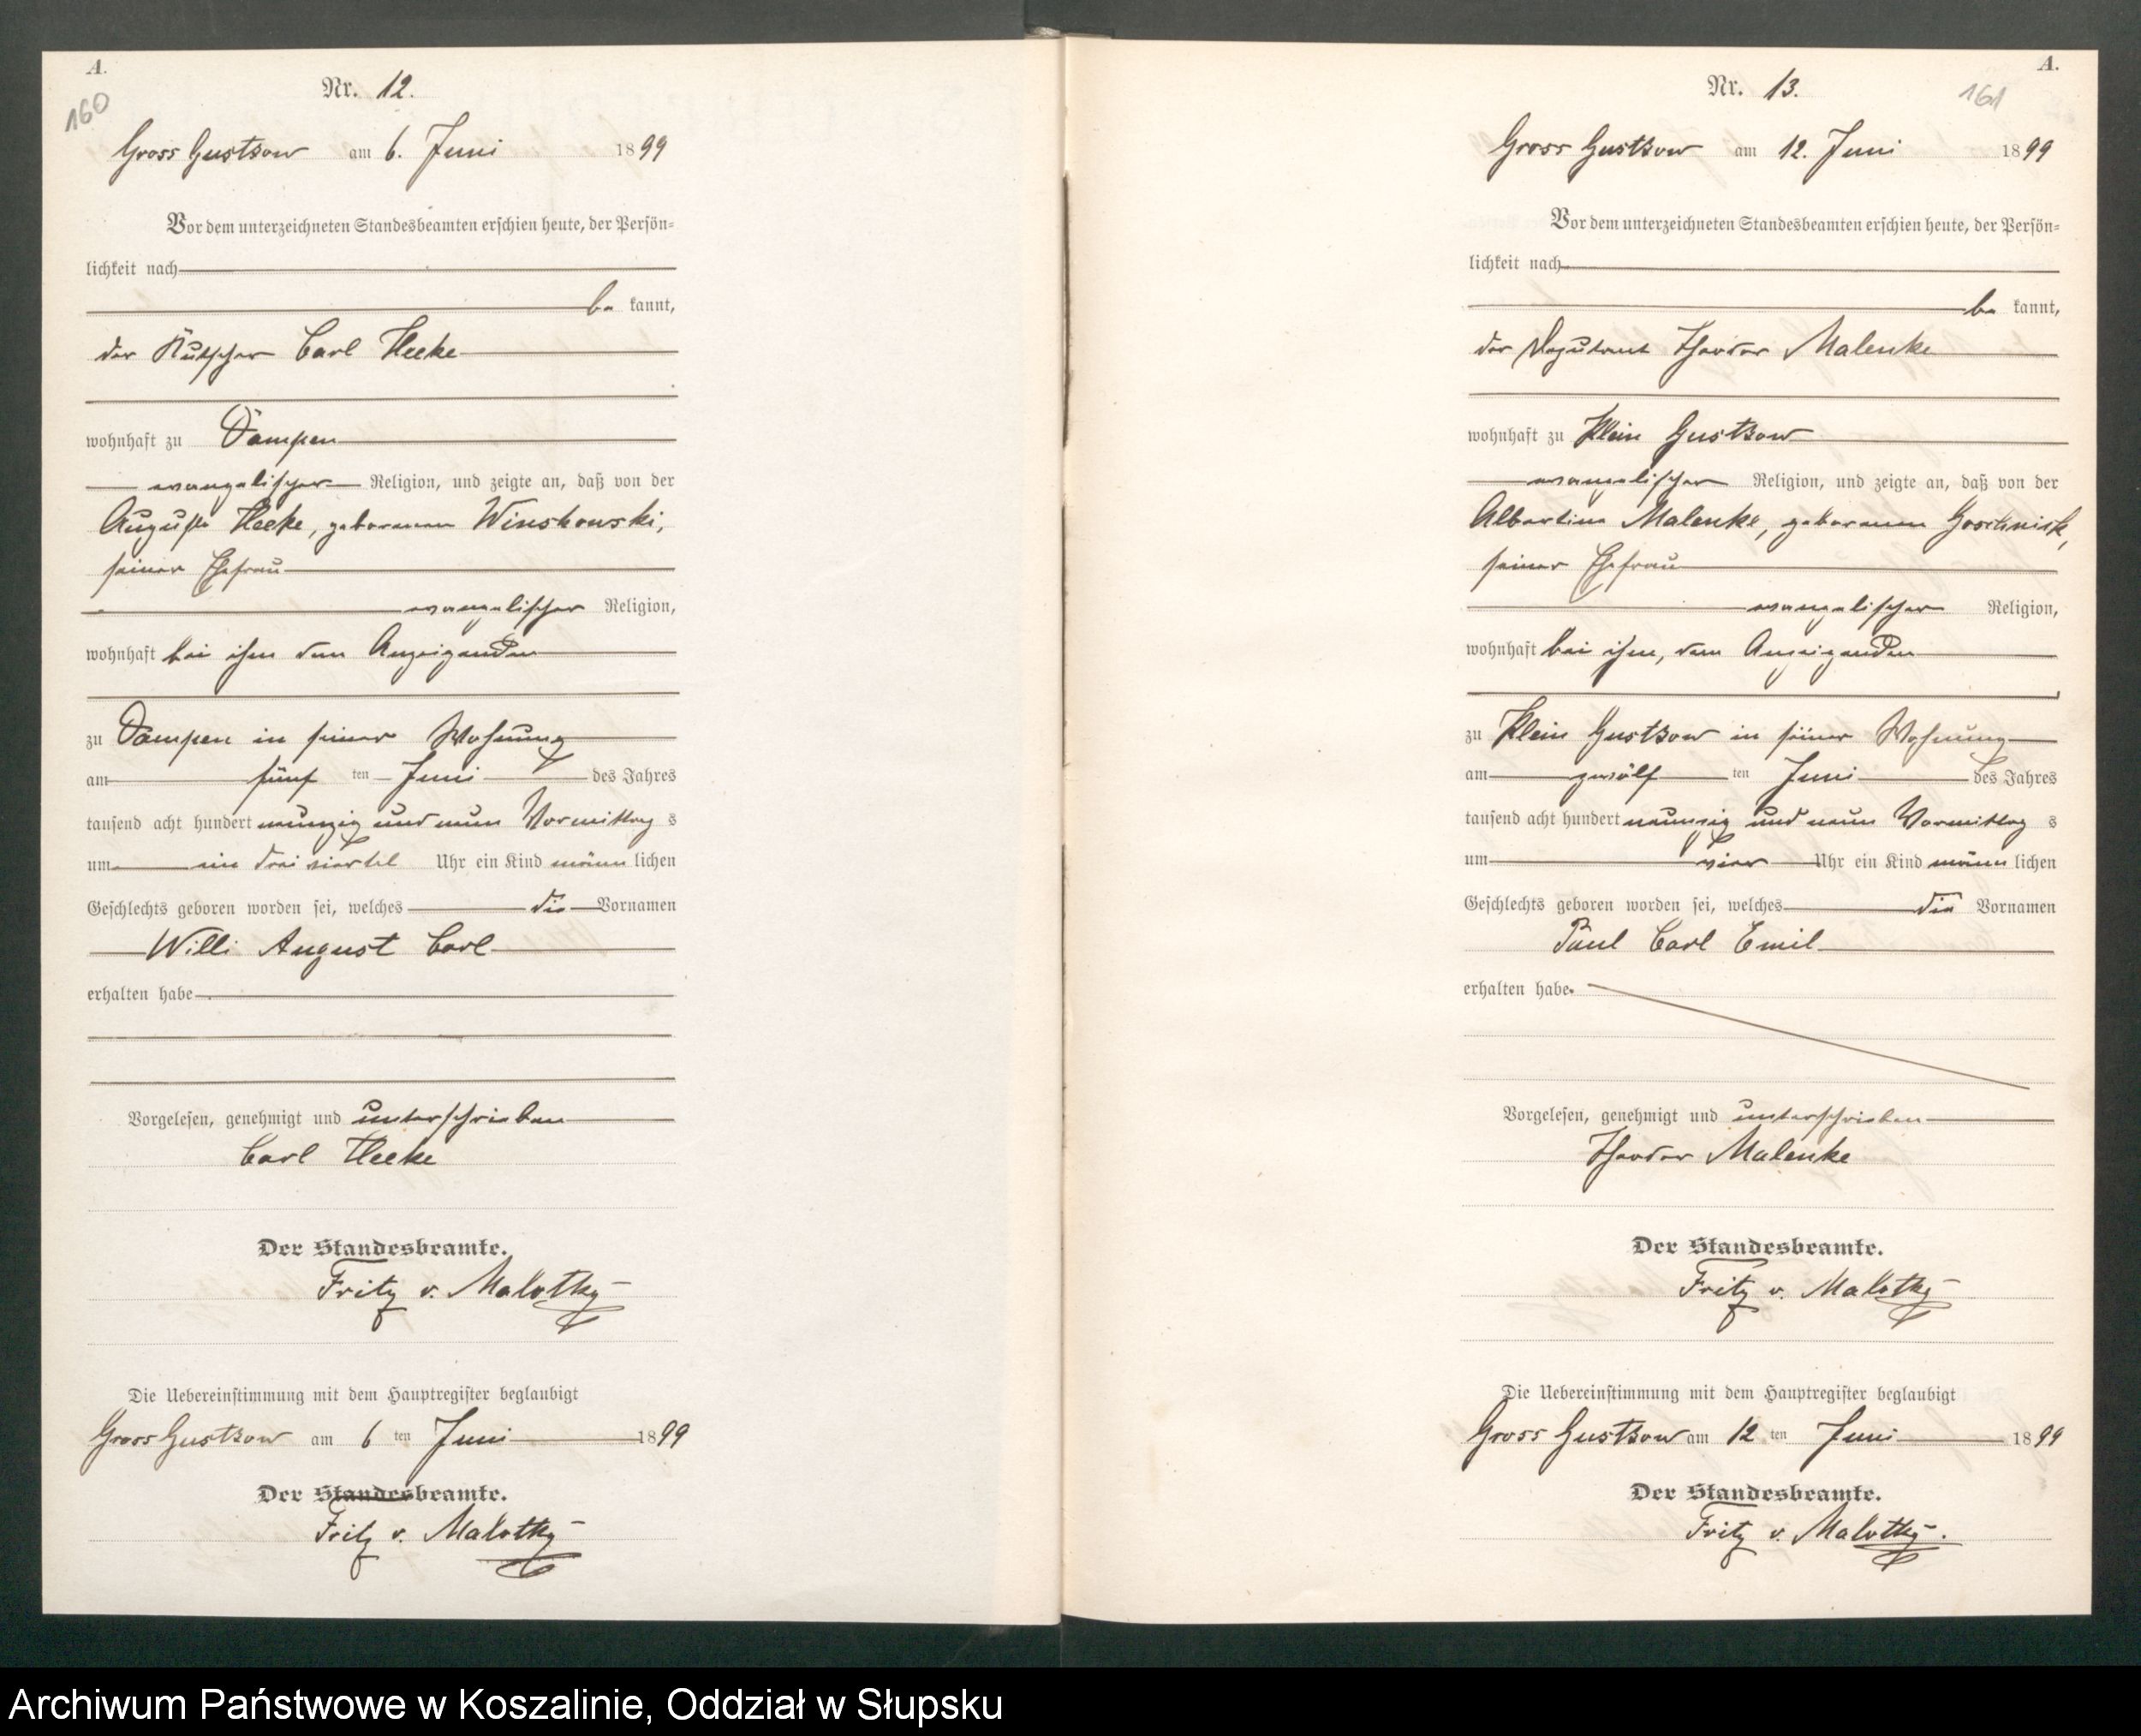 A.
160
Nr. 12.
Gross Gustkow am 6. Juni 1899
Vor dem unterzeichneten Standesbeamten erschien heute, der Persön-
lichkeit nach
be kannt,
der Kutscher Carl Heeke
wohnhaft zu Dampen
evangelischer Religion, und zeigte an, daß von der
Auguste Heeke, geborenen Winskowski,
seiner Ehefrau
evangelischer Religion,
wohnhaft bei ihm dem Anzeigenden
zu Dampen in seiner Wohnung
am fünf ten Juni des Jahres
tausend acht hundert neunzig und neun Vormittag s
um ein drei viertel Uhr ein Kind männ lichen
Geschlechts geboren worden sei, welches die Vornamen
Willi August Carl
erhalten habe
Vorgelesen, genehmigt und unterschrieben
Carl Heeke
Der Standesbeamte.
Fritz v. Malotky
Die Uebereinstimmung mit dem Hauptregister beglaubigt
Gross Gustkow am 6 ten Juni 1899
Der Standesbeamte.
Fritz v. Malotky
A.
161
Nr. 13.
Gross Gustkow am 12. Juni 1899
Vor dem unterzeichneten Standesbeamten erschien heute, der Persön-
lichkeit nach
be kannt,
der Deputant Theodor Malenke
wohnhaft zu Klein Gustkow
evangelischer Religion, und zeigte an, daß von der
Albertine Malenke, geborenen Goschnick,
seiner Ehefrau
evangelischer Religion,
wohnhaft bei ihm, dem Anzeigenden
zu Klein Gustkow in seiner Wohnung
am zwölf ten Juni des Jahres
tausend acht hundert neunzig und neun Vormittag s
um vier Uhr ein Kind männ lichen
Geschlechts geboren worden sei, welches die Vornamen
Paul Carl Emil
erhalten habe.
Vorgelesen, genehmigt und unterschrieben
Theodor Malenke
Der Standesbeamte.
Fritz v. Malotky
Die Uebereinstimmung mit dem Hauptregister beglaubigt
Gross Gustkow am 12 ten Juni 1899
Der Standesbeamte.
Fritz v. Malotky.
Archiwum Państwowe w Koszalinie, Oddział w Słupsku